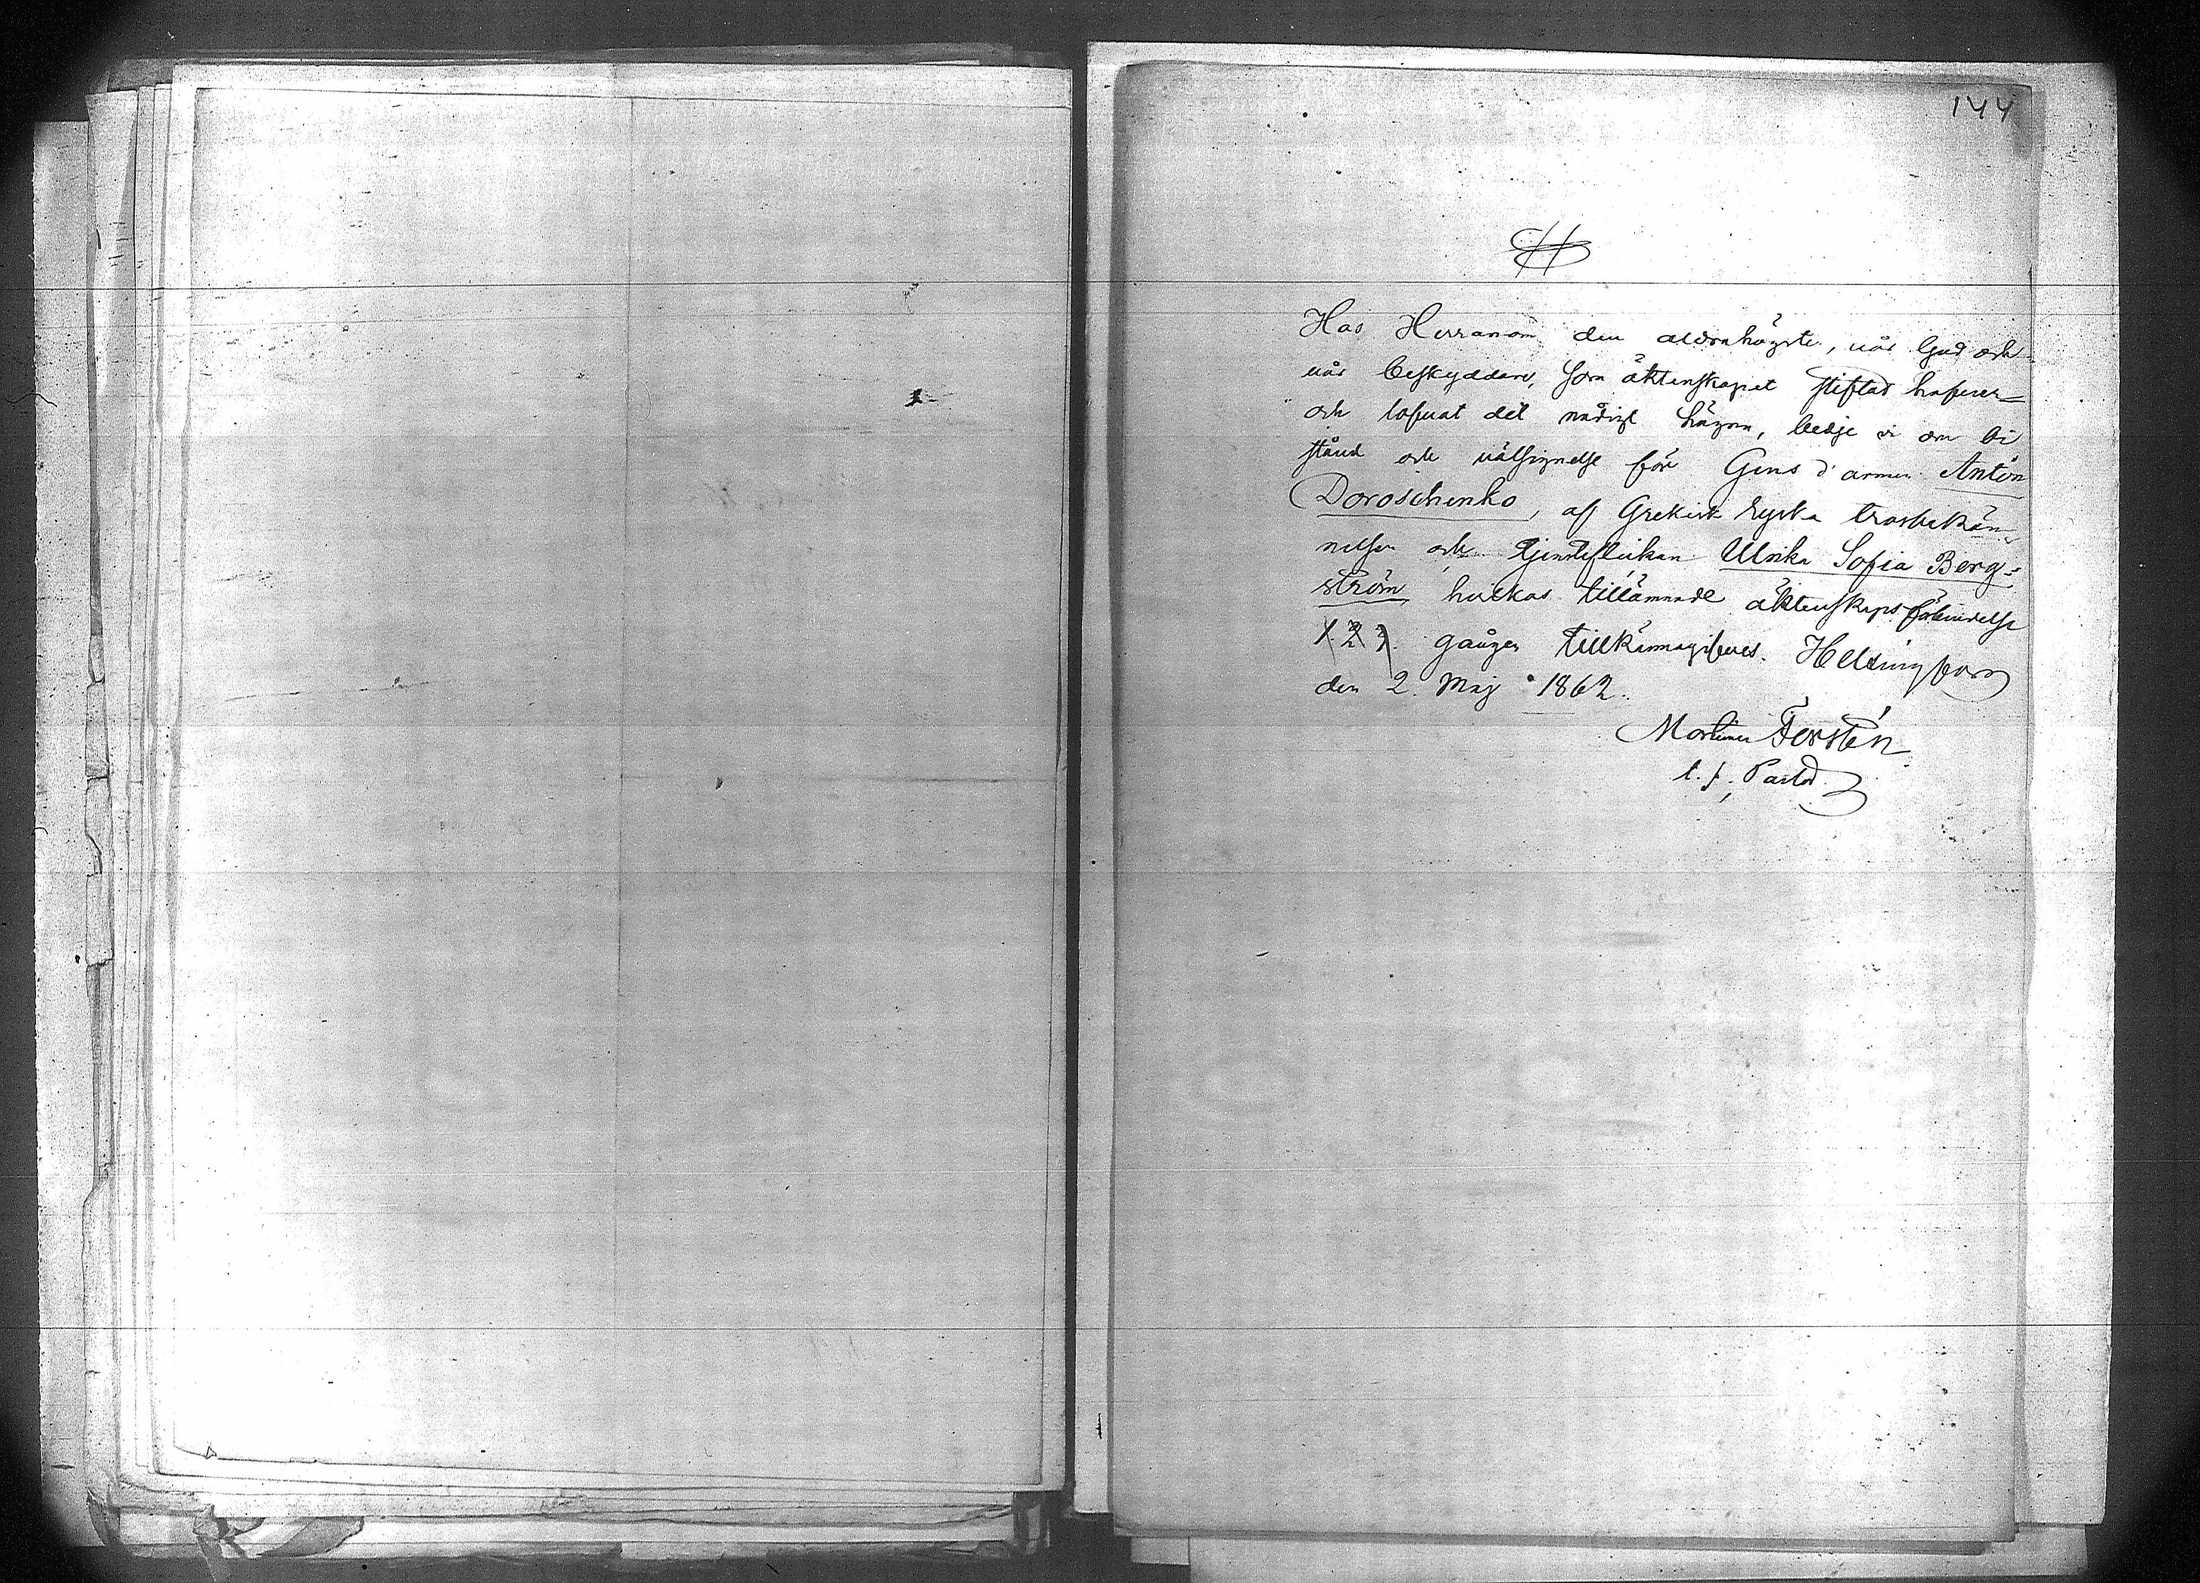 144
Hos Herranom den aldrahögste, vår Gud och
vår beskyddare, som äktenskapet stiftad hafver
och lofvat det nådigt hägna, bedje vi om bi
stånd och välsignelse för Gens d'armen Anton
Doroschenko, af Grekisk Ryska trosbekän,,
nelsen och tjensteflickan Ulrika Sofia Berg=
ström, hvilkas tillämnade äktenskapsförbindelse
1. 2. 3. gången tillkännagifves. Helsingfors
den 2. Maj 1862.
Mortimer Forstén
t. f. Pastor